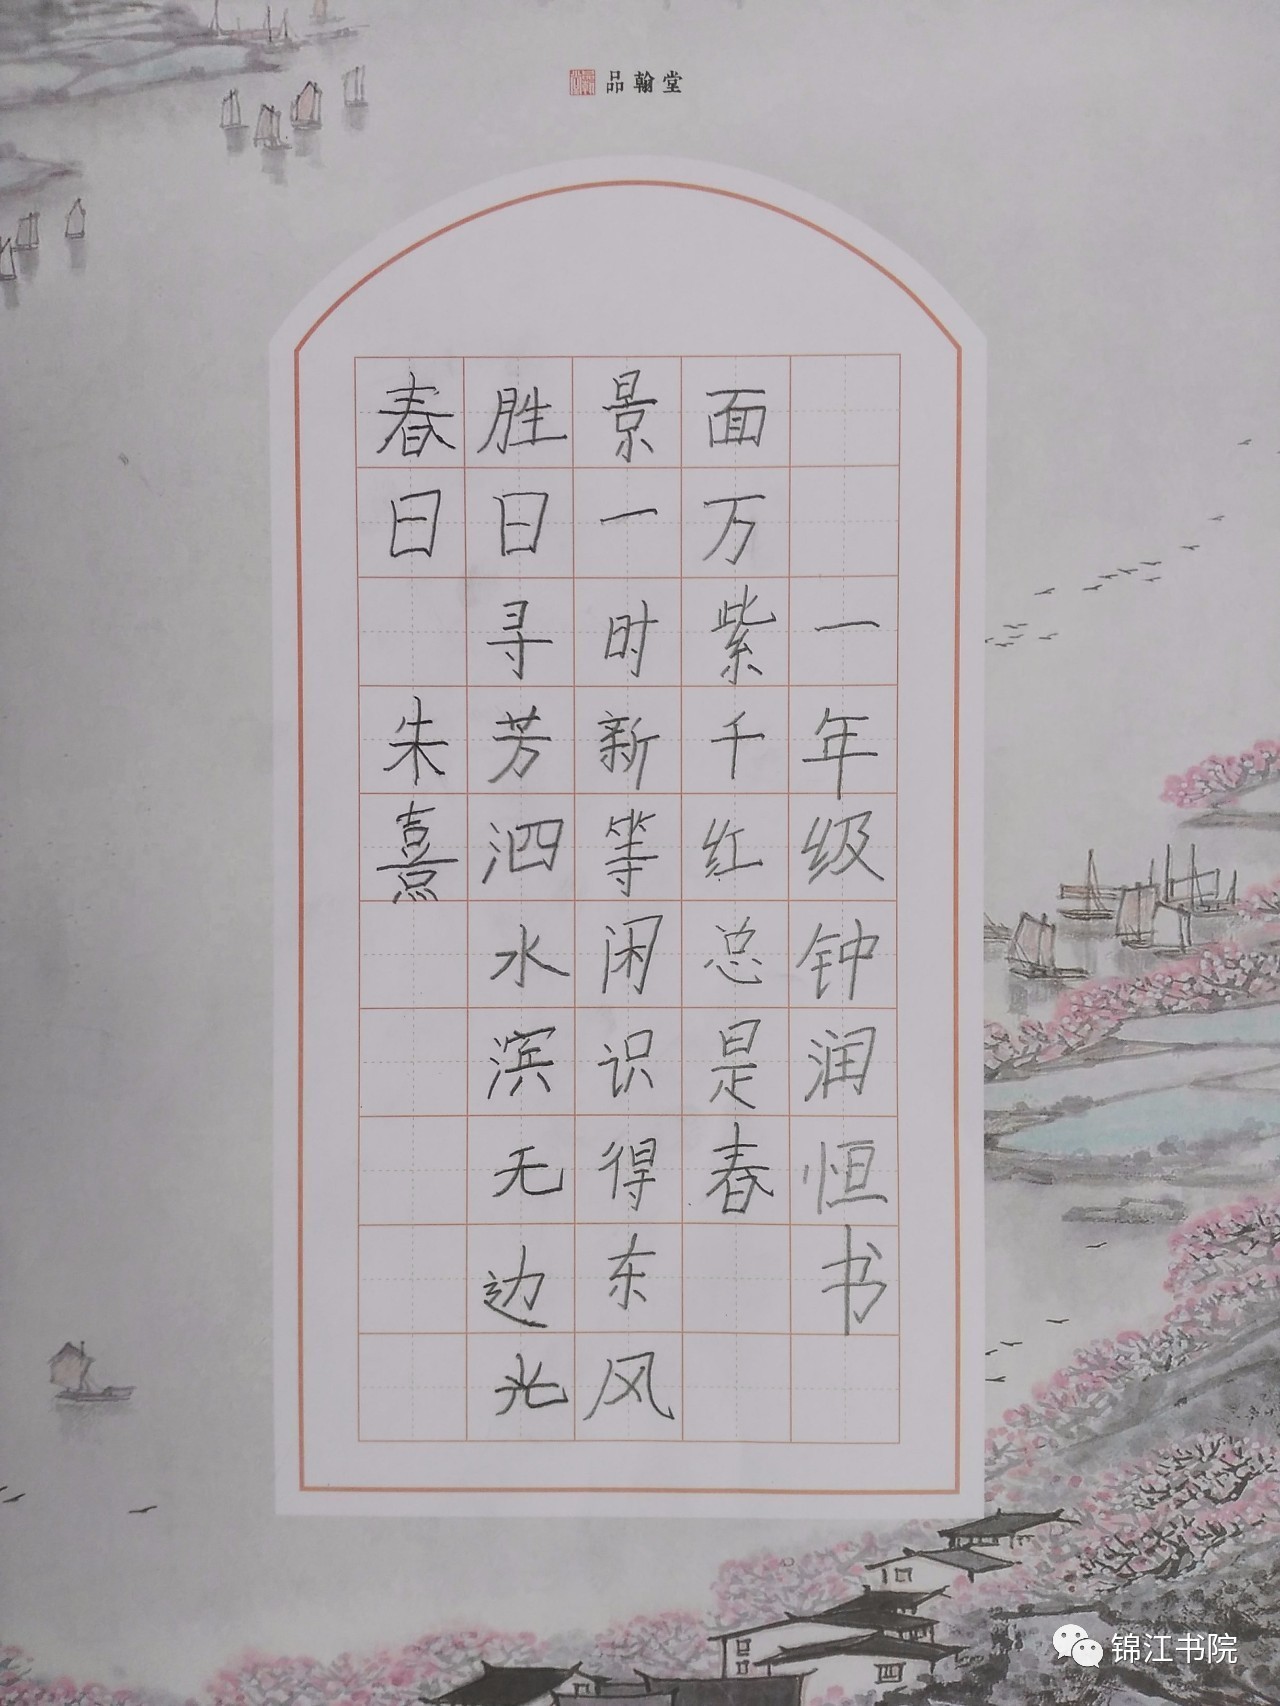 品翰堂
春日 朱熹
胜日寻芳泗水滨无边光
景一时新等闲识得东风
面万紫千红总是春
一年级钟润恒书
锦江书院